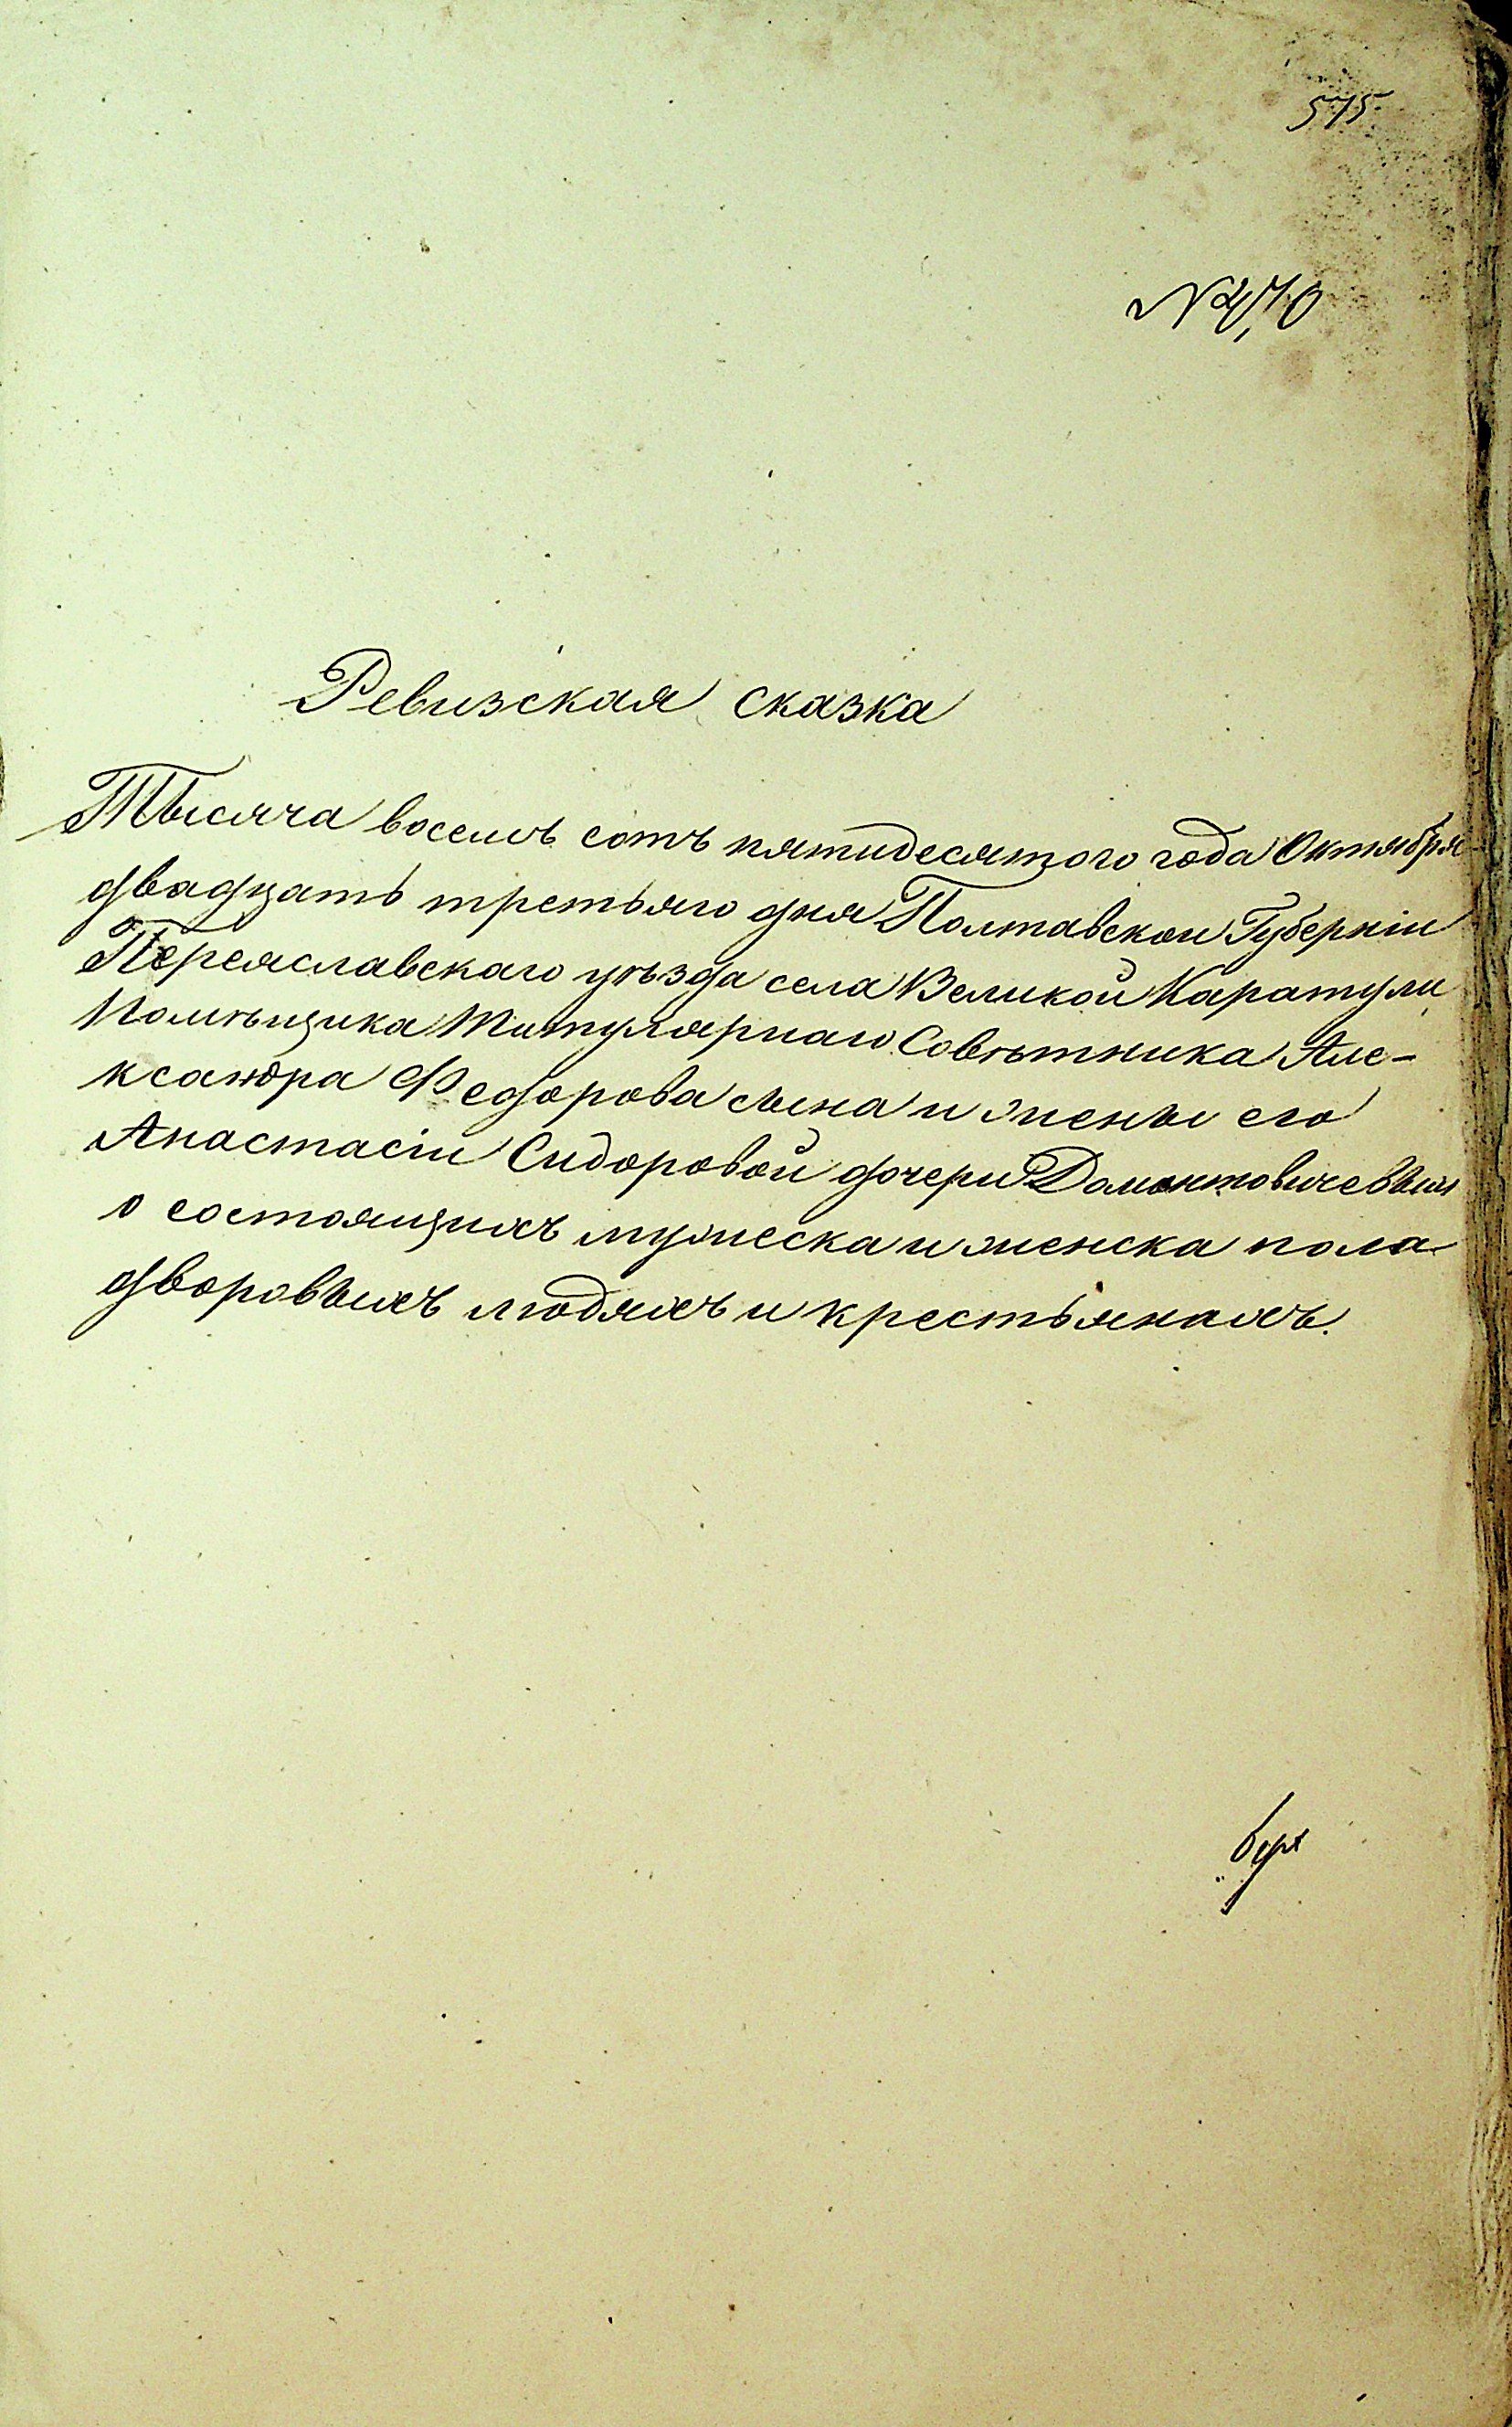 575
№ 470
Ревизская сказка
Тысяча восемь сотъ пятидесятого года Октября
двадцать третьяго дня Полтавской Губерніи
Переяславскаго уѣзда села Великой Каратули
Помѣщика Титулярнаго Совѣтника Але-
ксандра Федорова сына и жены его
Анастасіи Сидоровой дочери Домонтовичевыхъ
о состоящихъ мужеска и женска пола
дворовыхъ людяхъ и крестьянахъ.